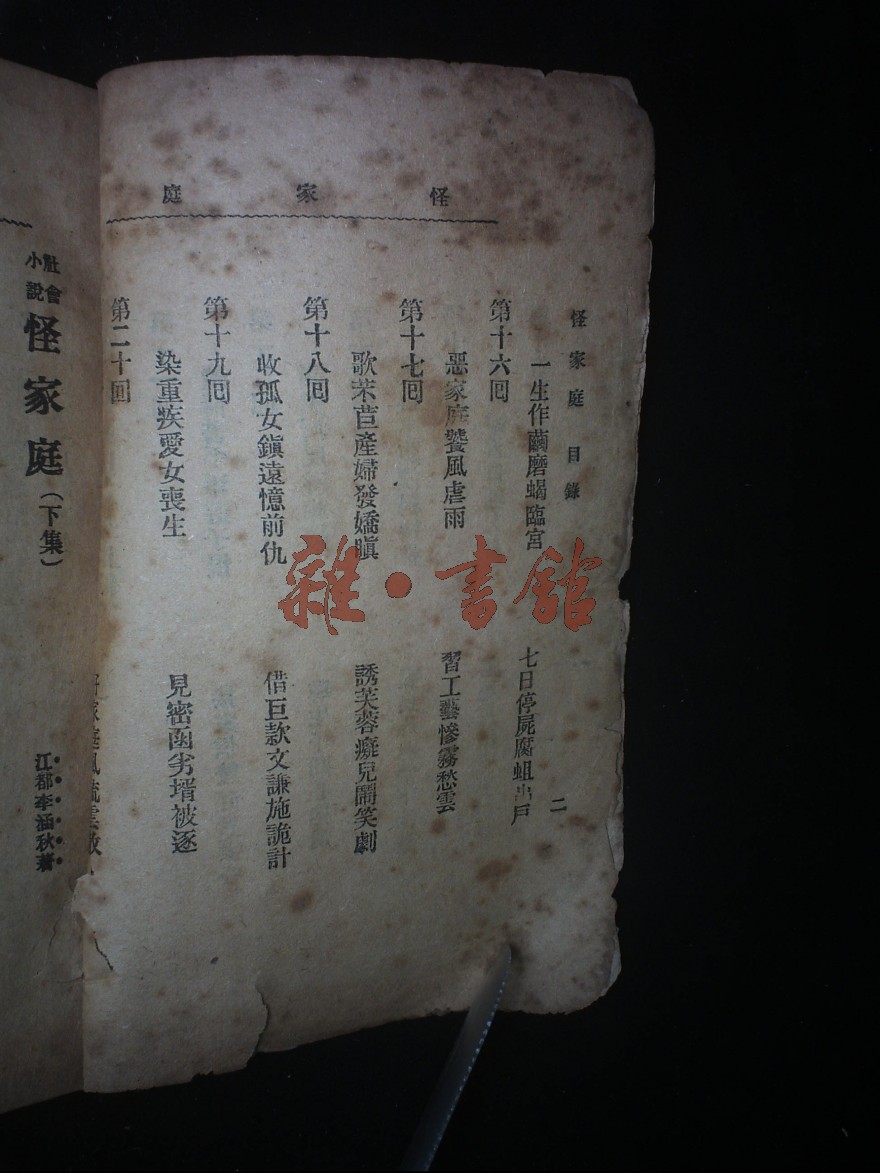 怪家庭
怪家庭 目錄 二
一生作繭磨蝎臨宮 七日停屍腐蛆出戶
第十六囘
惡家庭饕風虐雨 習工藝慘霧愁雲
第十七囘
歌芣苢產婦發嬌瞋 誘芙蓉癡兒鬧笑劇
第十八囘
收孤女鎭遠憶前仇 借巨款文謙施詭計
第十九囘
染重疾愛女喪生 見密函劣壻被逐
第二十囘
家庭風流雲散
社會小說 怪家庭(下集) 江都李涵秋著
雜·書館